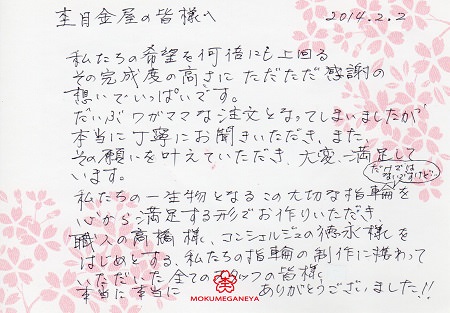 杢目金屋の皆様へ
2014.2.2
私たちの希望を何倍にも上回る
その完成度の高さに ただただ感謝の
想いでいっぱいです。
だいぶワガママなご注文となってしまいましたが
本当に丁寧にお聞きいただき、また、
その願いを叶えていただき、大変ご満足して
います。
私たちの一生物となるこの大切な指輪を
心からご満足する形でお作りいただき、
職人の高橋様、コンシェルジュの徳永様を
はじめとする、私たちの指輪の制作に携わって
いただいた全てのスタッフの皆様
本当に本当に ありがとうございました!!
MOKUMEGANEYA